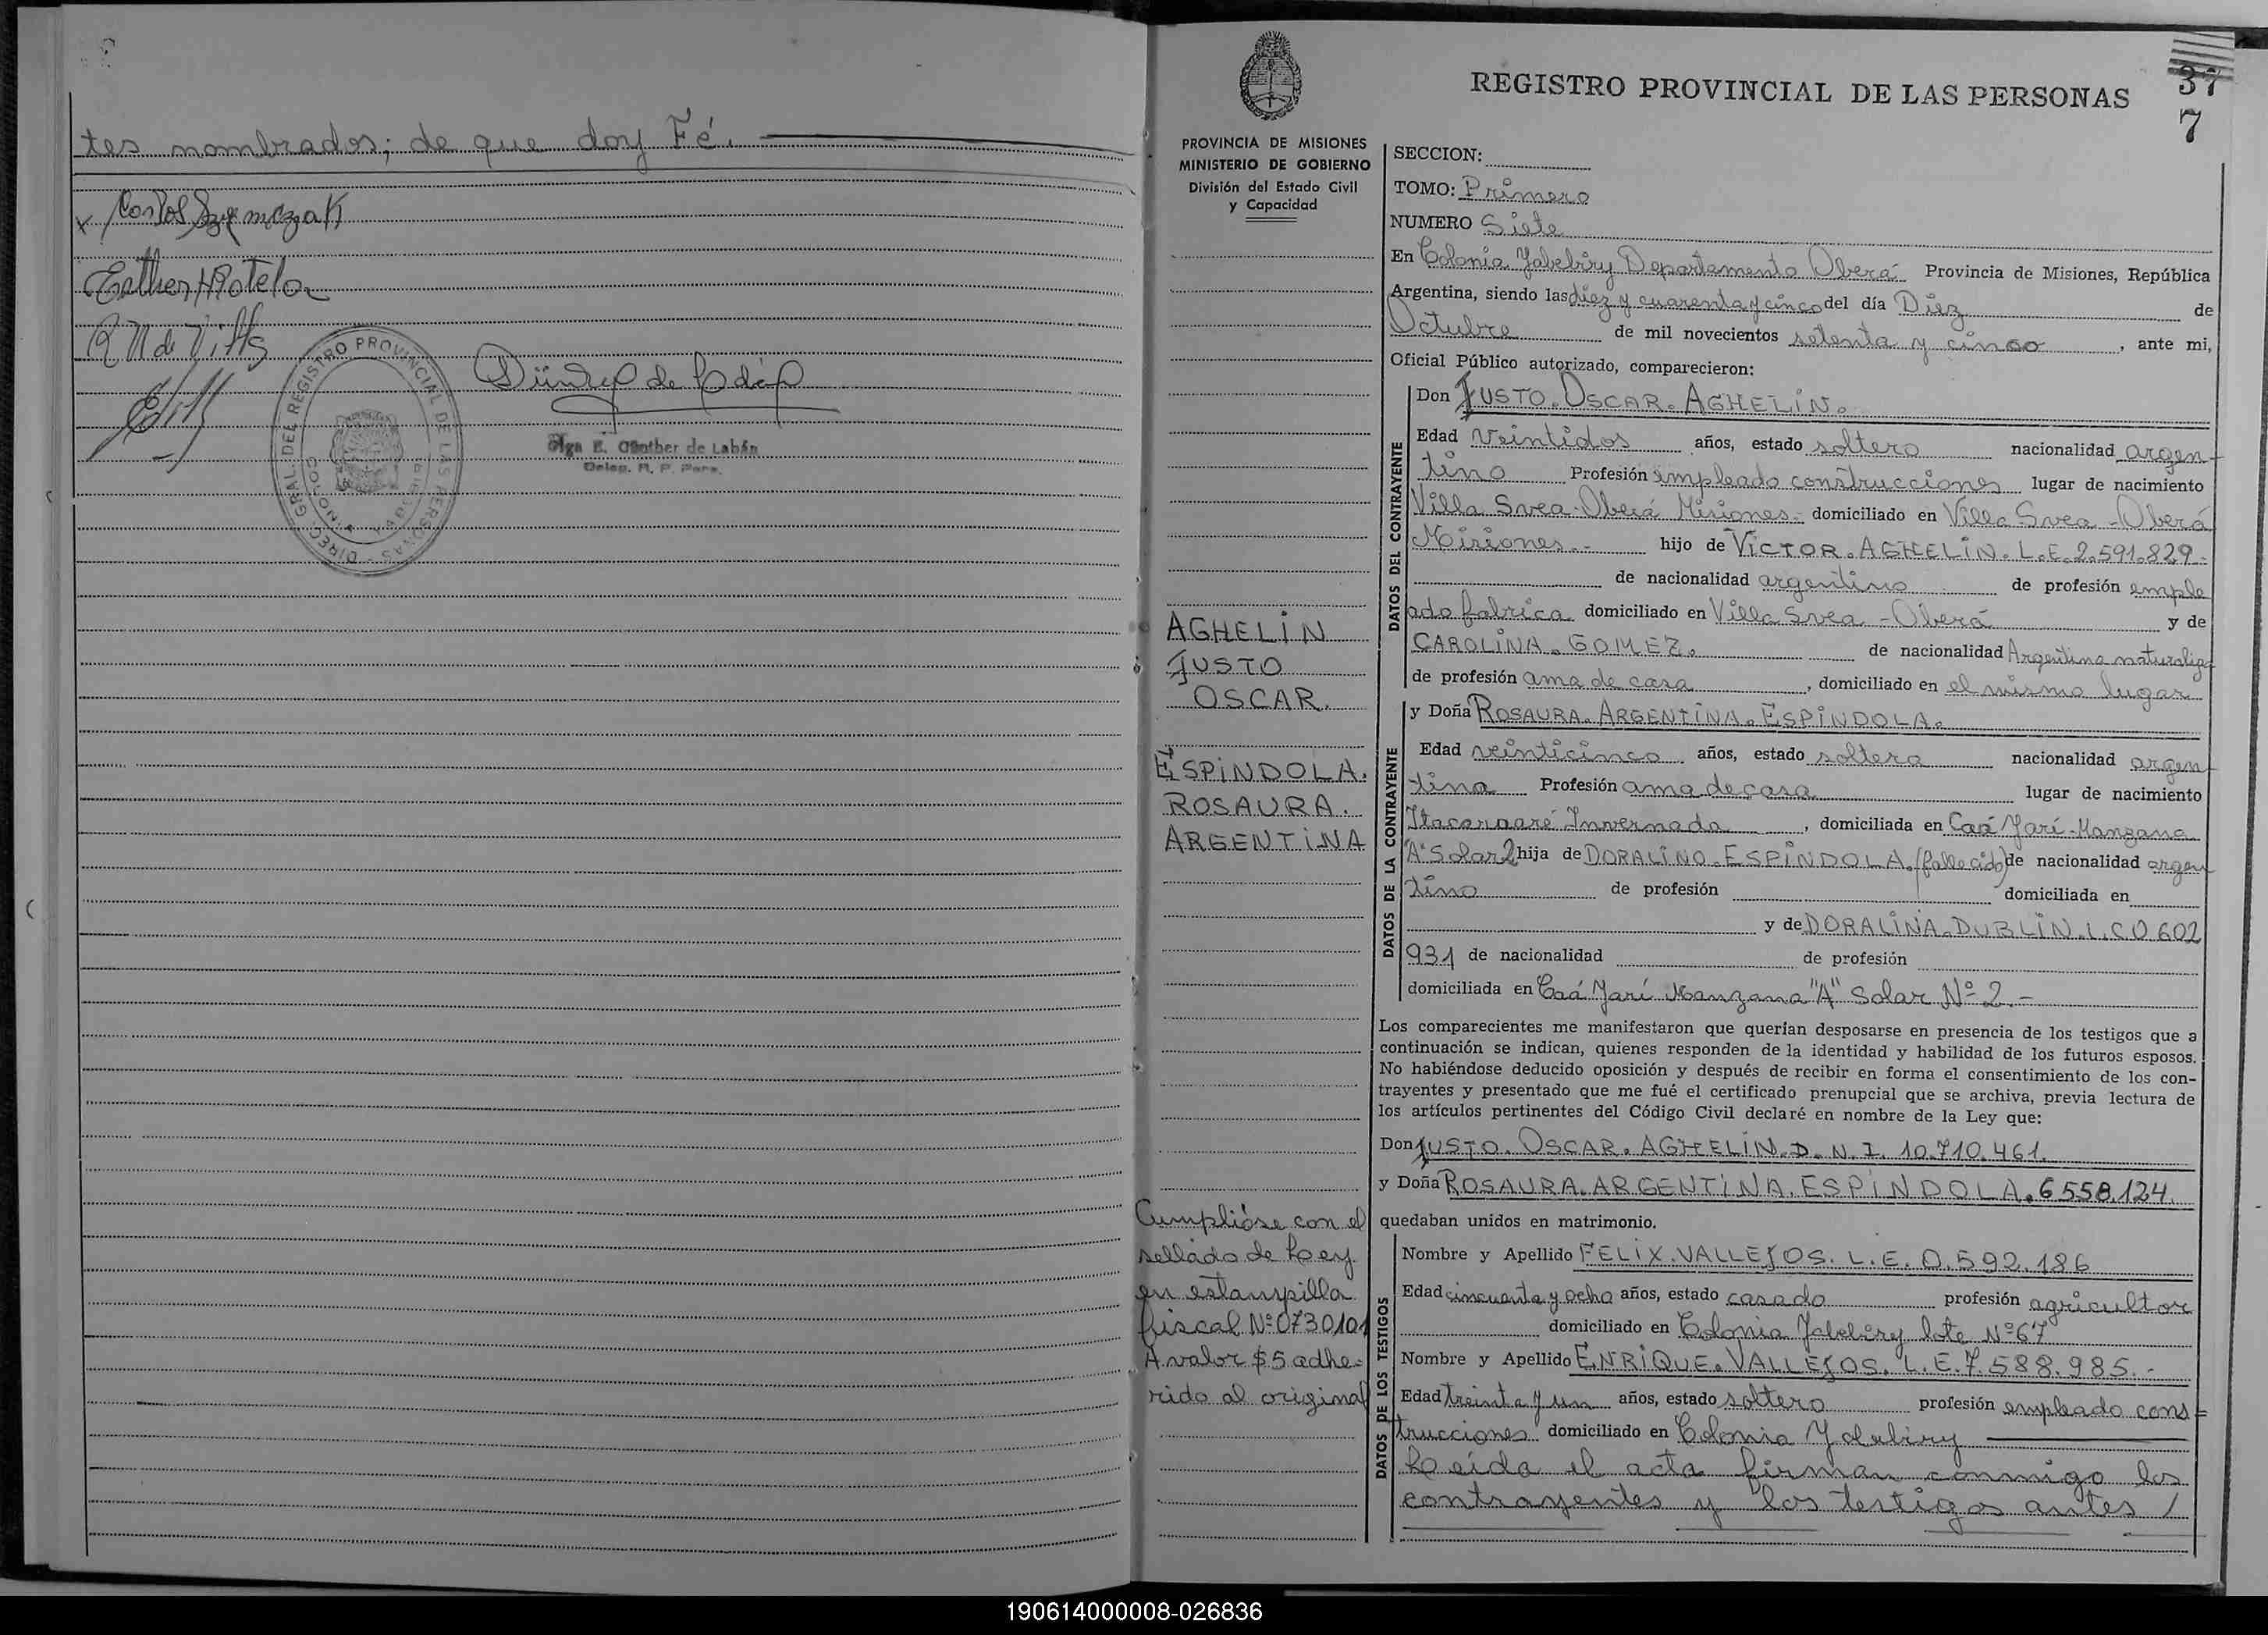 tes nombrados; de que doy Fé.
Carlos Szymczak
Esther H Botelo
R N de Vills
DIREC. GRAL. DEL REGISTRO PROVINCIAL DE LAS PERSONAS
Olga E. Günther de Labán
Deleg. R. P. Pers.
37
7
REGISTRO PROVINCIAL DE LAS PERSONAS
PROVINCIA DE MISIONES
MINISTERIO DE GOBIERNO
División del Estado Civil
y Capacidad
AGHELIN
JUSTO
OSCAR.
ESPINDOLA.
ROSAURA.
ARGENTINA
Cumplióse con el
sellado de Ley
en estampilla
fiscal Nº 0730101
A valor $5 adhe-
rido al original
SECCION:
TOMO: Primero
NUMERO Siete
En Colonia Yabebiry Departamento Oberá Provincia de Misiones, República
Argentina, siendo las diez y cuarenta y cinco del día Diez de
Octubre de mil novecientos setenta y cinco, ante mi,
Oficial Público autorizado, comparecieron:
DATOS DEL CONTRAYENTE
Don JUSTO. OSCAR. AGHELIN.
Edad veintidos años, estado soltero nacionalidad argen-
tino Profesión empleado construcciones lugar de nacimiento
Villa Svea-Oberá Misiones.- domiciliado en Villa Svea-Oberá
Misiones.- hijo de VICTOR. AGHELIN. L.E. 2.591.829.-
de nacionalidad argentino de profesión emple
ado fabrica domiciliado en Villa Svea-Oberá y de
CAROLINA. GOMEZ. de nacionalidad Argentina naturaliza
de profesión ama de casa, domiciliado en el mismo lugar
DATOS DE LA CONTRAYENTE
y Doña ROSAURA. ARGENTINA. ESPINDOLA.
Edad veinticinco años, estado soltera nacionalidad argen-
tina Profesión ama de casa lugar de nacimiento
Itacaruaré Invernada, domiciliada en Caá Yarí-Manzana
"A" Solar 2 hija de DORALINO. ESPINDOLA. (fallecido) de nacionalidad argen
tino de profesión domiciliada en
y de DORALINA. DUBLIN. L.C. 0.602
931 de nacionalidad de profesión
domiciliada en Caá Yarí Manzana "A" Solar Nº 2.-
Los comparecientes me manifestaron que querían desposarse en presencia de los testigos que a
continuación se indican, quienes responden de la identidad y habilidad de los futuros esposos.
No habiéndose deducido oposición y después de recibir en forma el consentimiento de los con-
trayentes y presentado que me fué el certificado prenupcial que se archiva, previa lectura de
los artículos pertinentes del Código Civil declaré en nombre de la Ley que:
Don JUSTO. OSCAR. AGHELIN. D. N. I. 10.710.461.
y Doña ROSAURA. ARGENTINA. ESPINDOLA. 6558.124.
quedaban unidos en matrimonio.
DATOS DE LOS TESTIGOS
Nombre y Apellido FELIX. VALLEJOS. L.E. 0.592.186
Edad cincuenta y ocho años, estado casado profesión agricultor
domiciliado en Colonia Yabebiry lote Nº 67
Nombre y Apellido ENRIQUE. VALLEJOS. L.E. 7.588.985.-
Edad treinta y un años, estado soltero profesión empleado cons=
trucciones domiciliado en Colonia Yabebiry
Leida el acta firman conmigo los
contrayentes y los testigos antes /
190614000008-026836